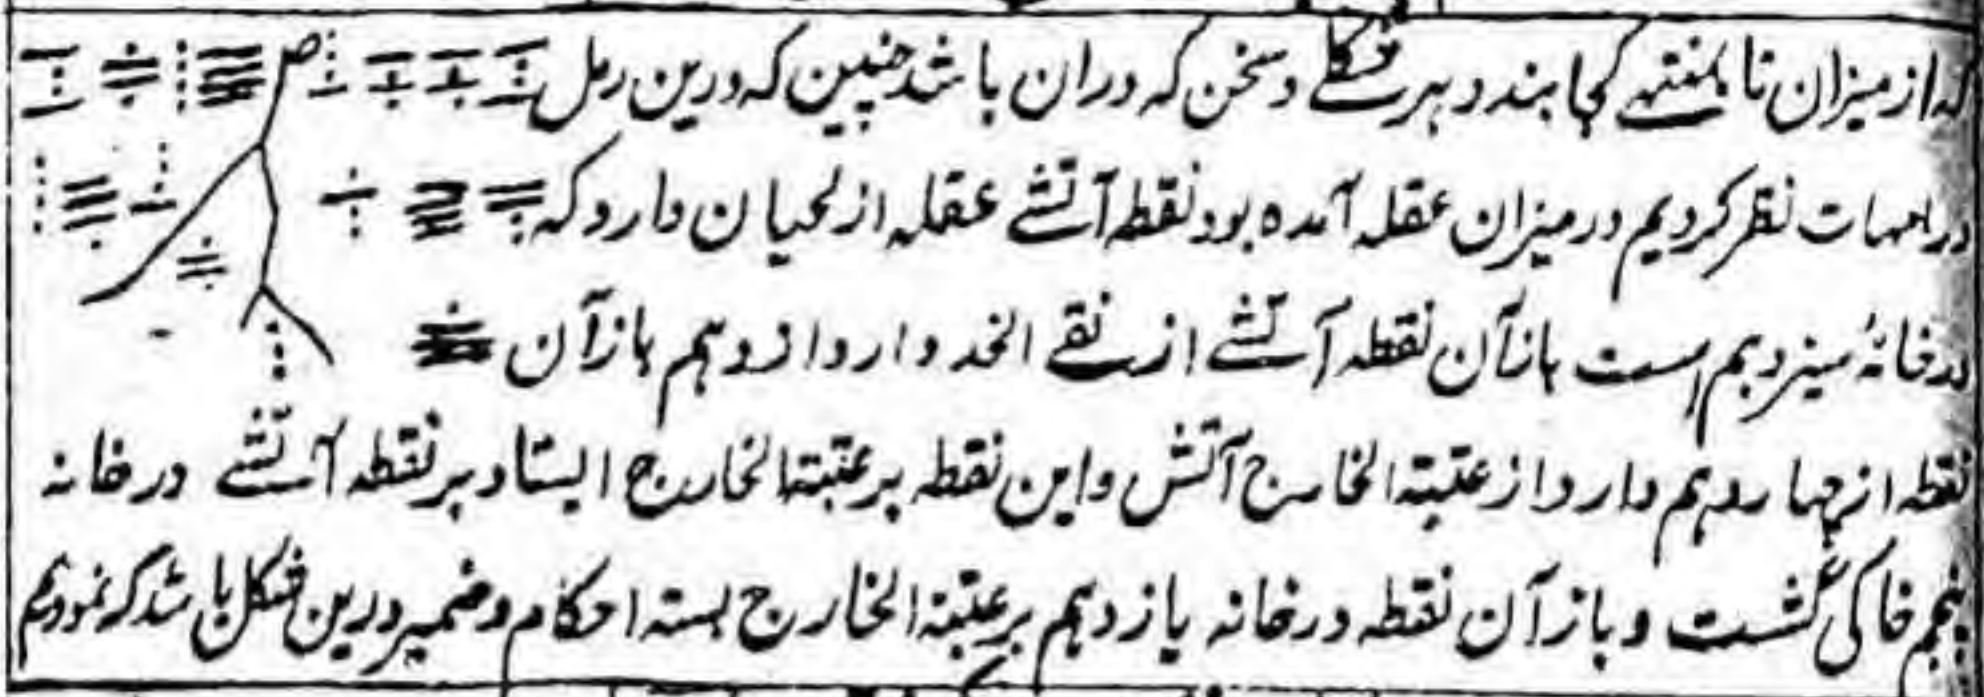 که از میزان تا بمنتهی کجا بندد بهر شکلے و سخن که دران باشد چنین که درین رمل
در امهات نظر کردیم در میزان عقله آمده بود نقطه آتشے عقله از لحیان دارد که
در خانهٔ سیزدهم است باز آن نقطه آتشے از نقے الخد دارد از دهم باز آن
نقطه از چهاردهم دارد از عتبة الخارج آتش و این نقطه بر عتبة الخارج ایستاد بر نقطه آتشے در خانه
پنجم خاکی گشت و باز آن نقطه در خانه یازدهم بر عتبة الخارج بسته احکام و ضمیر درین شکل باشد که نمودیم